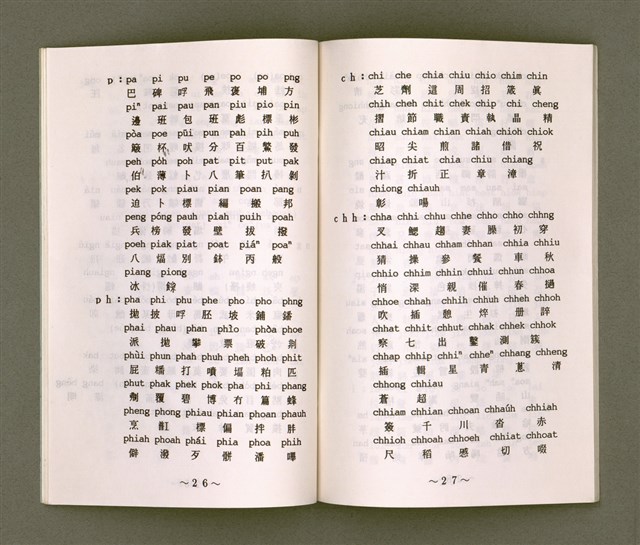 p : pa pi pu pe po po png
巴 碑 哹 飛 褒 埔 方
piⁿ pai pau pan piu pio pin
邊 班 包 班 彪 標 彬
pòa poe pūi pun pah pih puh
簸 杯 吠 分 百 鱉 發
peh póh poh pat pit put pak
伯 薄 卜 八 筆 扒 剝
pek pok piau pian poan pang
迫 卜 標 編 搬 邦
peng póng pauh piah puih poah
兵 榜 發 壁 拔 撥
poeh piak piat poat piáⁿ poaⁿ
八 煏 別 鉢 丙 般
piang piong
冰
ph : pha phi phu phe pho pho phng
拋 披 哹 胚 坡 鋪
phai phau phan phìo phòa phoe
派 拋 攀 票 破 剕
phùi phun phah phuh pheh phoh phit
屁 打 噴 粕 匹
phut phak phek phok pha phiⁿ phang
覆 碧 博 冇 篇 蜂
pheng phong phiau phian phoan phauh
烹 標 偏 拌 胖
phiah phoah phái phia phoa phih
僻 潑 歹 潘
～26～
ch : chi che chia chiu chio chim chin
芝 劑 這 周 招 眞
chih cheh chit chek chip chi cheng
摺 節 職 責 執 晶 精
chiau chiam chian chiah chioh chiok
昭 尖 煎 諸 借 祝
chiap chiat chia chiu chiang
汁 折 正 章 漳
chiong chiauh
彰 噶
chh : chha chhi chhu chhe chho chho chhng
叉 鰓 趨 妻 臊 初 穿
chhai chhau chham chhan chhia chhiu
猜 操 參 餐 車 秋
chhio chhim chhin chhui chhun chhoa
悄 深 親 催 春
chhoe chhah chhih chhuh chheh chhoh
吹 插 憩 焠 册 誶
chhat chhit chhut chhak chhek chhok
察 七 出 鑿 測 簇
chhap chhip chhiⁿ chheⁿ chhang chheng
插 輯 星 青 葱 清
chhong chhiau
蒼 超
chhiam chhian chhoan chhaúh chhiah
簽 千 川 沓 赤
chhioh chhoah chhoeh chhiat chhoat
尺 切 啜
～27～